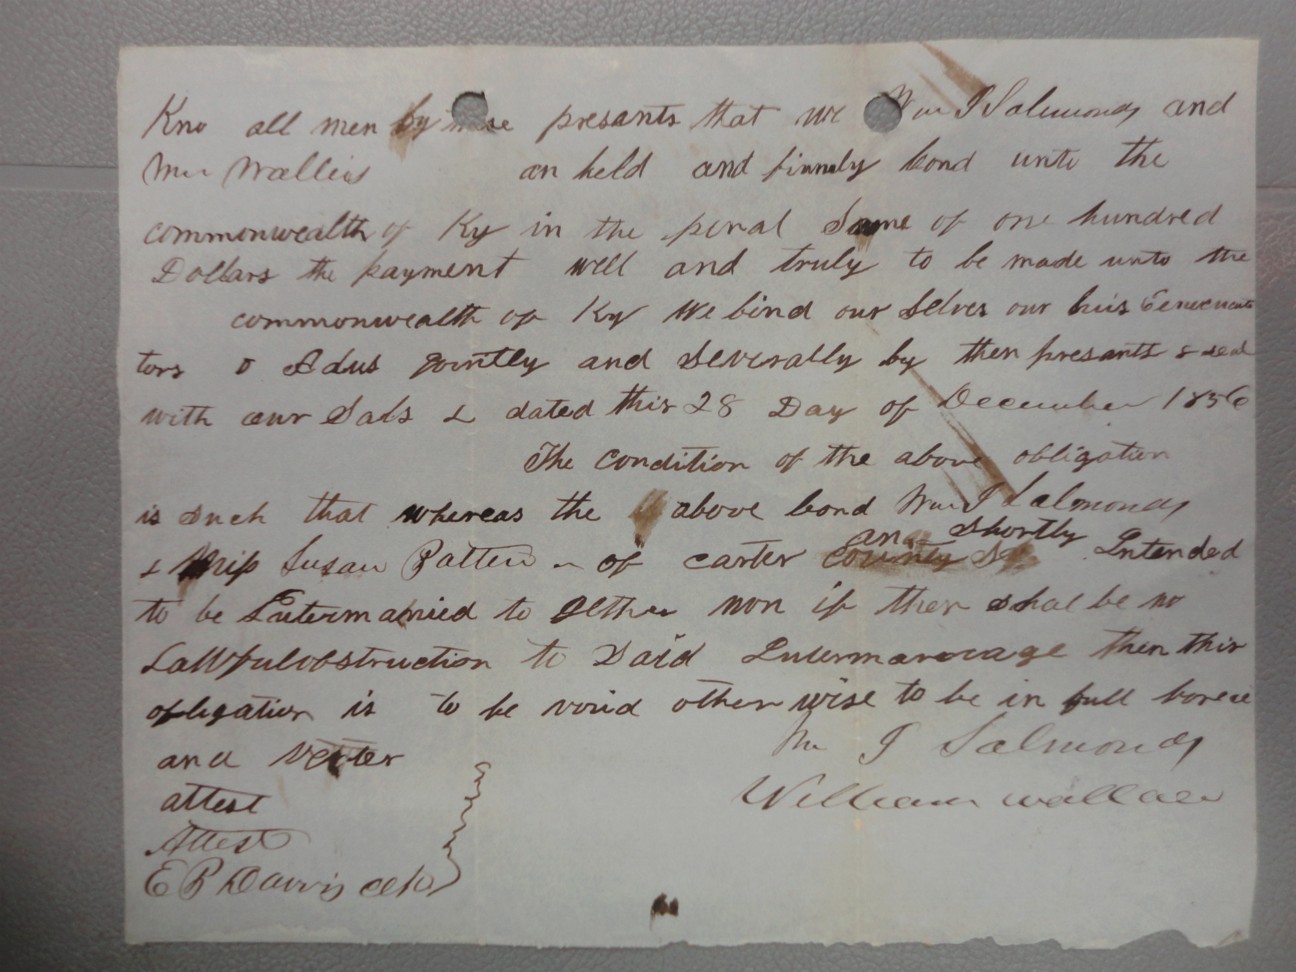 Kno all men by these presants that we Wm J Salmonds and
Wm Wallis an held and firmely bond unto the
commonwealth of Ky in the penal Some of one hundred
Dollars the payment well and truly to be made unto the
commonwealth of Ky We bind our Selves our hiis
tors & Adms jointly and Severally by then presants & seal
with our Sals & dated this 28 Day of December 1856
The condition of the above obligation
is such that whereas the above bond Wm J Salmonds
an Shortly
& Mis Susan Patten of carter county Intended
to be Intermarried to gether non if ther shal be no
Lawfulobstruction to Said Intermarrage then this
obligation is to be void other wise to be in full
and Verter
Wm J Salmonds
attest
William wallace
Attest
E P Davis clk